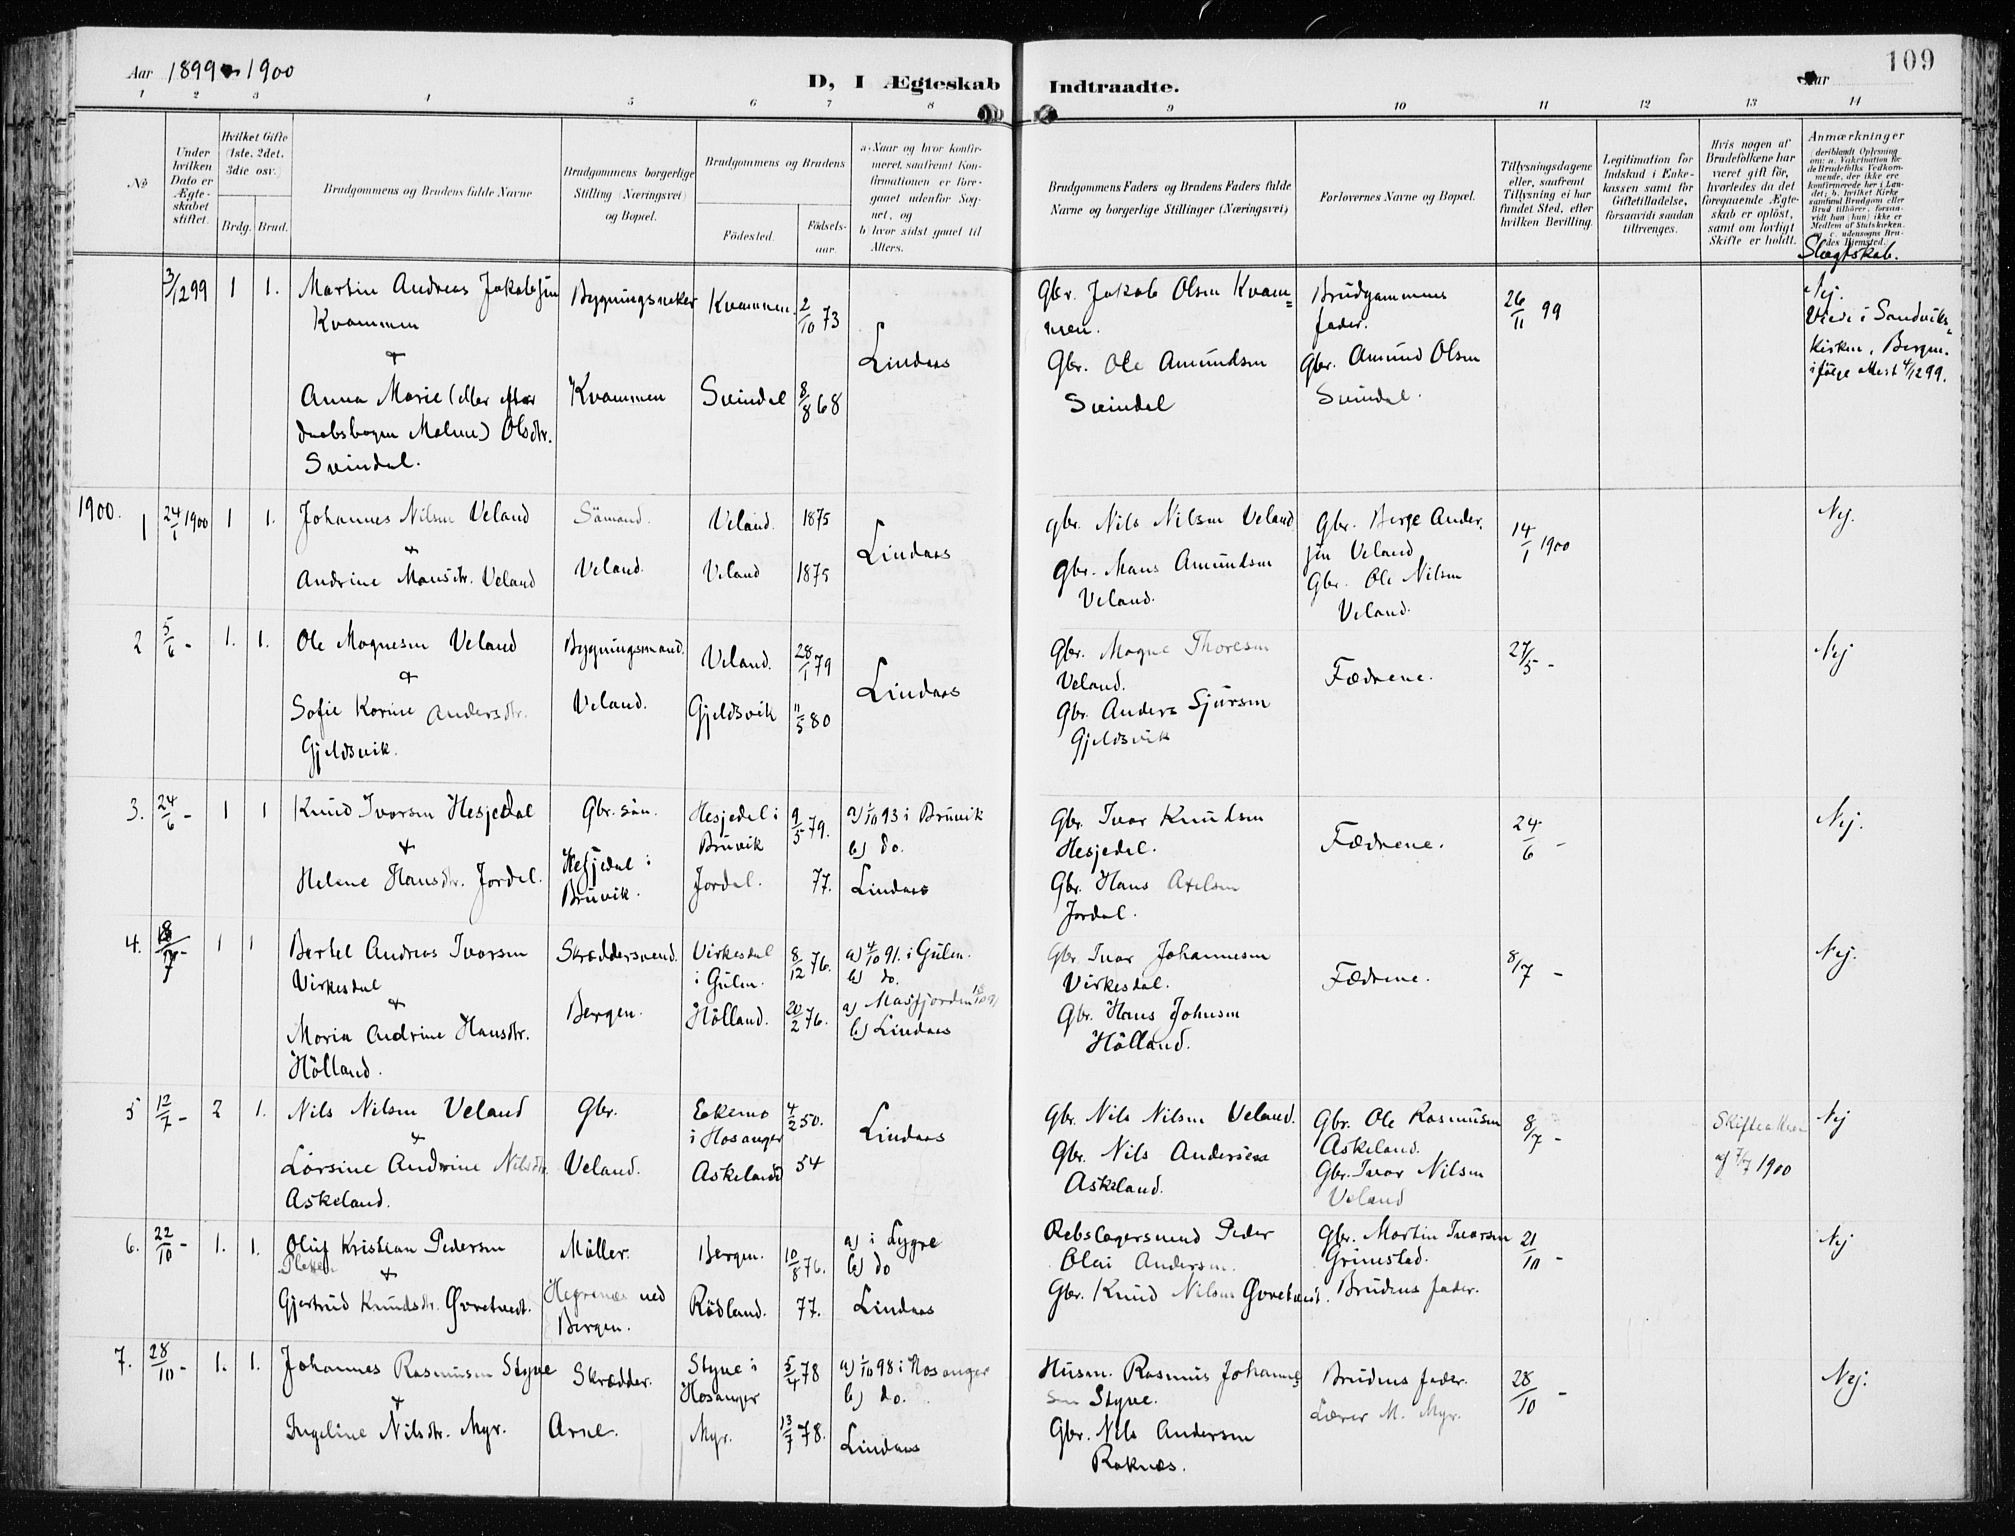 Aar 1899 & 1900
D, I Ægteskab Indtraadte.
Aar
109
1 2 3 4 5 6 7 8 9 10 11 12 13 14
No
Under hvilken Dato er Ægteskabet stiftet.
Hvilket Gifte (1ste, 2det, 3die osv.)
Brdg. Brud.
Brudgommens og Brudens fulde Navne
Brudgommens borgerlige Stilling (Næringsvei) og Bopæl.
Brudgommens og Brudens
Fødested.
Fødsels-aar.
a) Naar og hvor konfirmeret, saafremt Konfirmationen er foregaaet udenfor Sognet, og
b) hvor sidst gaaet til Alters.
Brudgommens Faders og Brudens Faders fulde Navne og borgerlige Stillinger (Næringsvei)
Forlovernes Navne og Bopæl.
Tillysningsdagene eller, saafremt Tillysning ei har fundet Sted, efter hvilken Bevilling.
Legitimation for Indskud i Enkekassen samt for Giftetilladelse, forsaavidt saadan tiltrænges.
Hvis nogen af Brudefolkene har været gift før, hvorledes da det foregaaende Ægteskab er opløst, samt om lovligt Skifte er holdt.
Anmærkninger
Slægtskab.
3/12 99 1 1. Martin Andreas Jakobsen
Kvammen
&
Anna Marie (eller efter
daabsbogen Malene) Olsdtr.
Svindal.
Bygningssneker
Kvammen
Kvammen. 2/10 73
Svindal 8/8 68
Lindaas
Gbr. Jakob Olsen Kvam=
men.
Gbr. Ole Amundsen
Svindal
Brudgommens
fader.
Gbr. Amund Olsen
Svindal.
26/11 99
Nej.
Viede i Sandviks=
kirken, Bergen.
ifølge Att. 4/12 99.
1900.
1 24/1 1900 1 1. Johannes Nilsen Veland
&
Andrine Mansdtr. Veland
Sömand.
Veland.
Veland. 1875
Veland 1875
Lindaas
Gbr. Nils Nilsen Veland
Gbr. Mans Amundsen
Veland.
Gbr. Berge Ander.
sen Veland
Gbr. Ole Nilsen
Veland.
14/1 1900
Nej.
2 5/6 - 1. 1. Ole Magnesen Veland
&
Sofie Karine Andersdtr.
Gjeldsvik.
Bygningsmand.
Veland.
Veland. 28/1 79
Gjeldsvik 11/5 80
Lindaas
Gbr. Magne Thoresen
Veland.
Gbr. Anders Sjursen
Gjeldsvik
Fædrene.
27/5 -
Nej
3. 24/6 - 1 1 Knud Ivarsen Hesjedal
&
Helene Hansdtr. Jordal.
Gbr. sön.
Hesjedal i
Bruvik.
Hesjedal i
Bruvik 9/5 79.
Jordal. 77.
a) 1/10 93 i Bruvik
b) do.
Lindaas
Gbr. Ivar Knudsen
Hesjedal.
Gbr. Hans Axelsen
Jordal.
Fædrene.
24/6 -
Nej.
4. 18/7 - 1 1 Bertel Andreas Ivarsen
Virkesdal
&
Maria Andrine Hansdtr.
Hölland.
Skræddersvend.
Bergen.
Virkesdal
i Gulen. 8/12 76.
Hölland. 20/2 76.
a) 4/10 91. i Gulen.
b) do.
a) Masfjorden
b) Lindaas
Gbr. Ivar Johannesen
Virkesdal.
Gbr. Hans Johnsen
Hölland.
Fædrene.
8/7 -
Nej.
5 12/7 - 2 1. Nils Nilsen Veland
&
Lovsine Andrine Nilsdtr.
Askeland.
Gbr.
Veland.
Eekemo
i Hosanger 4/2 50.
Askeland 54
Lindaas
Gbr. Nils Nilsen Veland.
Gbr. Nils Andersen
Askeland.
Gbr. Ole Rasmusen
Askeland.
Gbr. Ivar Nilsen
Veland
8/7 -
Skifteattest
af 7/7 1900
Nej
6. 22/10 - 1. 1. Oluf Kristian Pedersen
&
Gjertrud Knudsdtr. Øvretvedt.
Möller.
Hegrenæs ved
Bergen.
Bergen. 10/8 76.
Rödland. 77.
a) i Lygre
b) do
Lindaas
Rebslagersvend Peder
Olai Andersen.
Gbr. Knud Nilsen Øvretvedt.
Gbr. Martin Ivarsen
Grimstad.
Brudens fader.
21/10 -
Nej
7. 28/10 - 1. 1. Johannes Rasmusen Styve
&
Ingeline Nilsdtr. Myr.
Skrædder.
Arne.
Styve i
Hosanger 5/4 78
Myr. 13/7 78.
a) 1/10 98 i Hosanger
b) do.
Lindaas
Husm. Rasmus Johanne=
sen Styve.
Gbr. Nils Andersen
Raknæs.
Brudens fader.
Lærer M. Myr.
28/10 -
Nej.